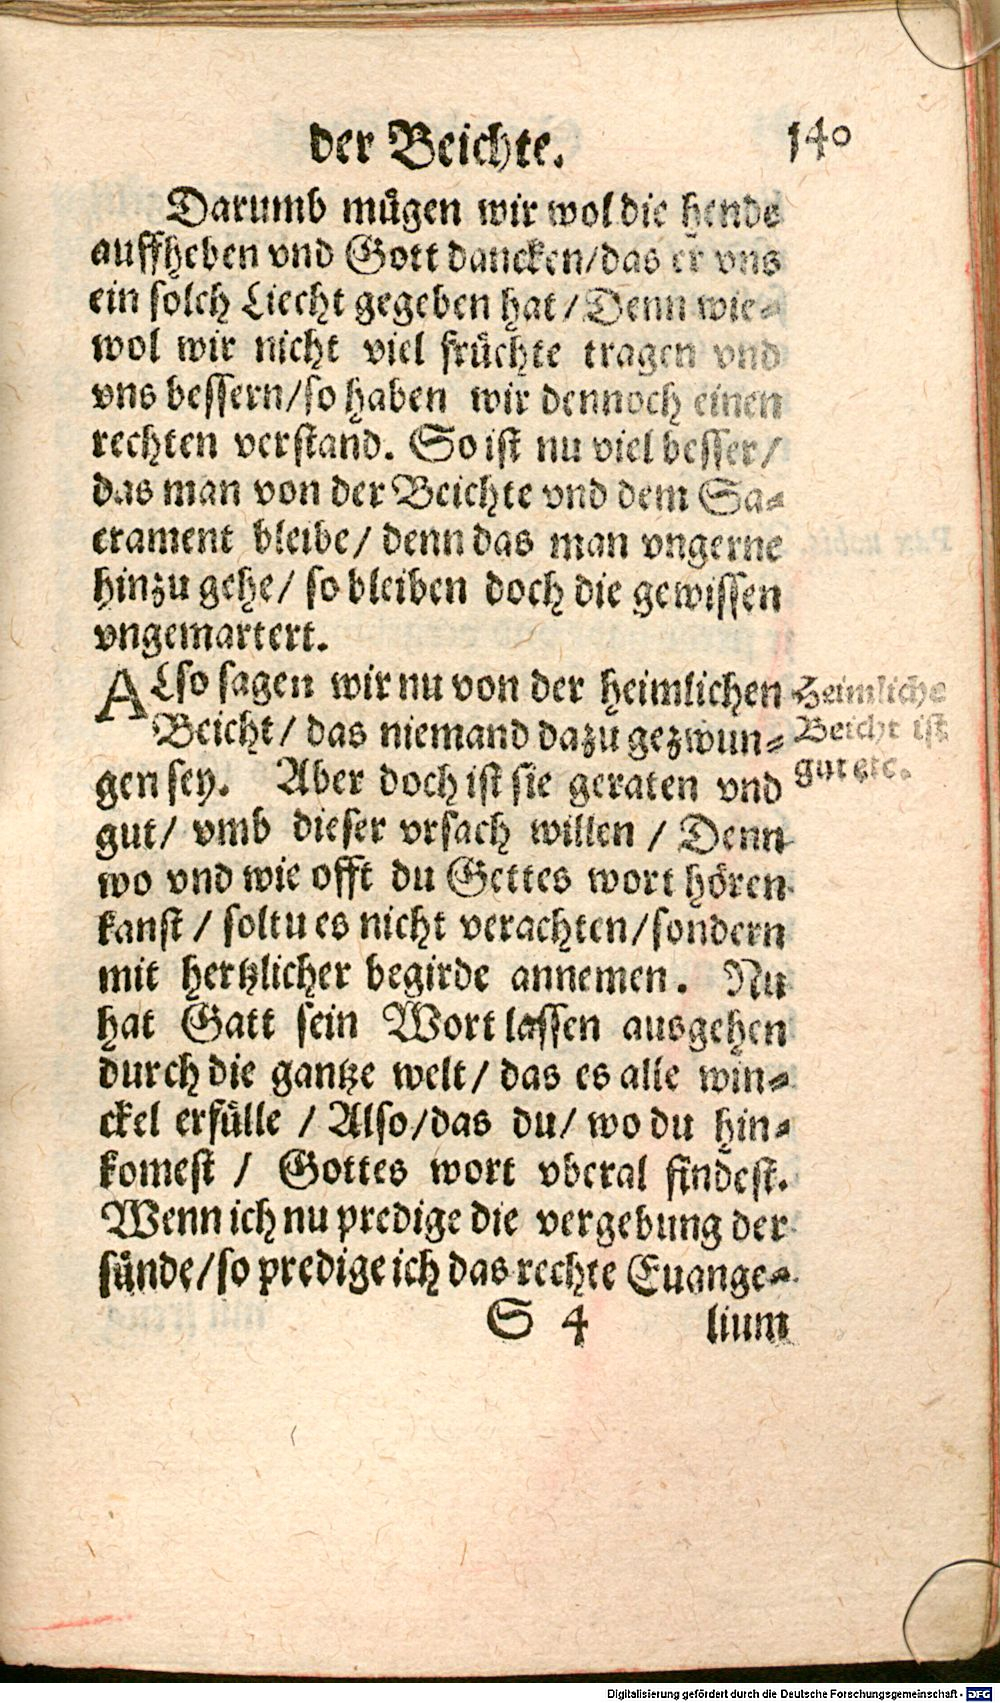 der Beichte. 140
Darumb mügen wir wol die hende
auffheben vnd Gott dancken/das er vns
ein solch Liecht gegeben hat / Denn wie-
wol wir nicht viel früchte tragen vnd
vns bessern/so haben wir dennoch einen
rechten verstand. So ist nu viel besser/
das man von der Beichte vnd dem Sa-
crament bleibe/ denn das man vngerne
hinzu gehe/ so bleiben doch die gewissen
vngemartert.
ALso sagen wir nu von der heimlichen
Beicht/ das niemand dazu gezwun-
gen sey. Aber doch ist sie geraten vnd
gut/ vmb dieser vrsach willen / Denn
wo vnd wie offt du Gettes wort hören
kanst / soltu es nicht verachten/sondern
mit hertzlicher begirde annemen. Nu
hat Gatt sein Wort lassen ausgehen
durch die gantze welt/ das es alle win-
ckel erfülle / Also/das du/ wo du hin-
komest / Gottes wort vberal findest.
Wenn ich nu predige die vergebung der
sünde/so predige ich das rechte Euange-
S 4 lium
Heimliche
Beicht ist
gut etc.
Digitalisierung gefördert durch die Deutsche Forschungsgemeinschaft - DFG